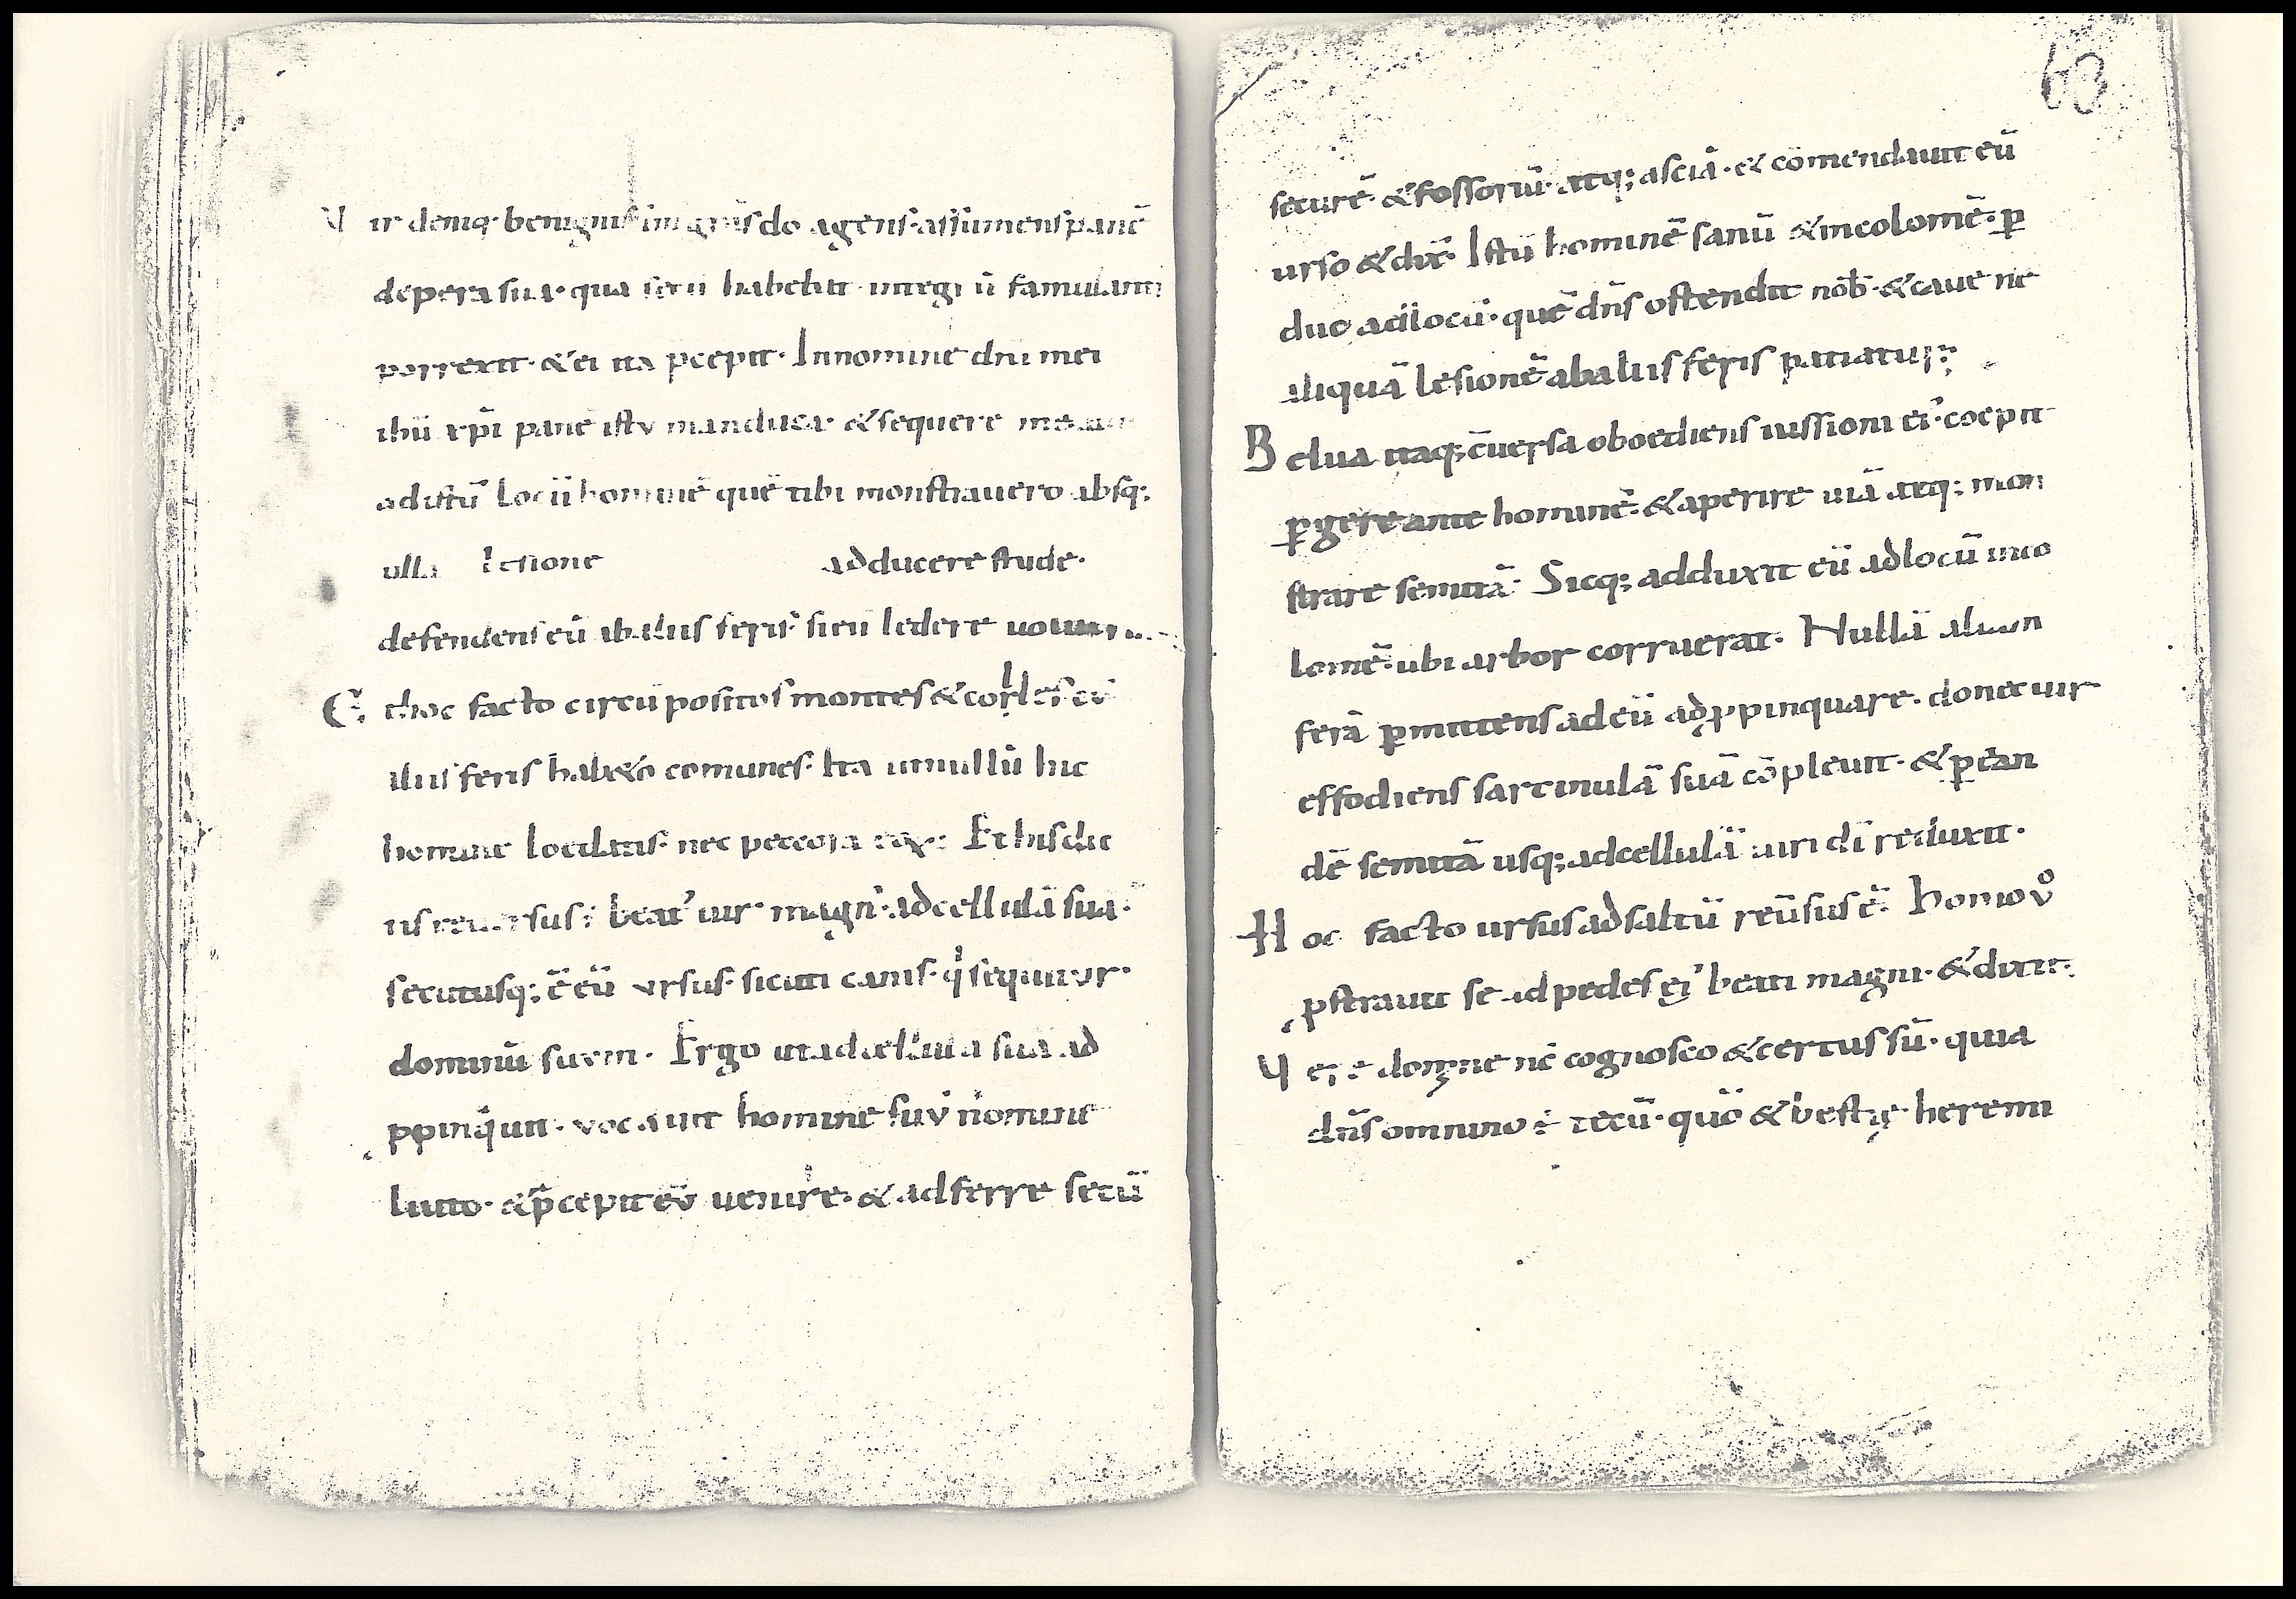 ir deniq· benignus in gr̄is do agens· assumens panē
de pera sua· qua secū habebat ursū famulanti
porrexit· & ei ita p̄cepit· In nomine dn̄i mei
ihū xp̄i panē istv manduca· & sequere me
ad istū locū hominē quē tibi monstrauero absq;
ulla lesione adducere stude·
defendens eū ab aliis feris· si eū ledere
E t hoc facto circū positos montes & colles cū
aliis feris habeto comunes· Ita ut nullū hic
homine ledatis· nec peccora Et his dic
tis reuersus ÷ beat᾽ uir magn᾽ ad cellulā suā·
secutusq; ē eū vrsus· sicuti canis· qͥ sequitvr·
dominū suvm· Ergo ut ad cellula sua ad
ppinq̄uit· vocauit homine suv nomine
liuto· & p̄cepit ev̄ uenire· & adferre secū
63
securē· & fossoriū· atq; asciā· & cōmendauit eū
urso & dix̄· Istū hominē sanū & incolomē· ꝑ
duc ad locū· quē dn̄s ostendit nob̄· & caue ne
aliquā lesionē ab aliis feris patiatur;
B elua itaq; c̄uersa oboediens iussioni ei᾽· coepit
ꝑgere ante hominē· & aperire uiā atq; mon
strare semitā· Sicq; adduxit eū ad locū inco
lomē· ubi arbor corruerat· Nullā aliam
ferā ꝑmittens ad eū adꝓpinquare· donec uir
effodiens sarcinulā suā cōpleuit· & ꝑ eān
dē semitā usq; ad cellulā uiri dī reduxit·
H oc facto ursus ad saltū reūsus ē· Homo v̊
ꝓstrauit se ad pedes ei᾽ beati magni· & dixit·
V ere domne nc̄ cognosco & certus sū· quia
dn̄s omnino ÷ tecū· quō & bestię· heremi